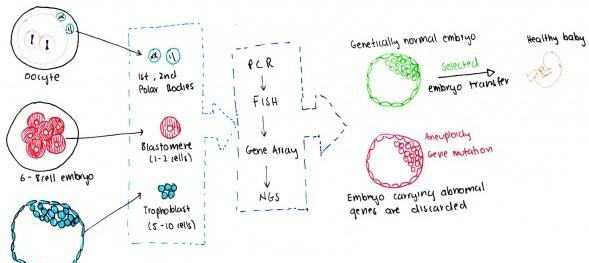 oocyte
6-8cell embryo
1st, 2nd
Polar Bodies
Blastomere
(1-2 cells)
Trophoblast
(5-10 cells)
PCR
FISH
Gene Array
NGS
Genetically normal embryo
Selected
embryo transfer
Healthy baby
Aneuploidy
Gene mutation
Embryo carrying abnormal
genes are discarded